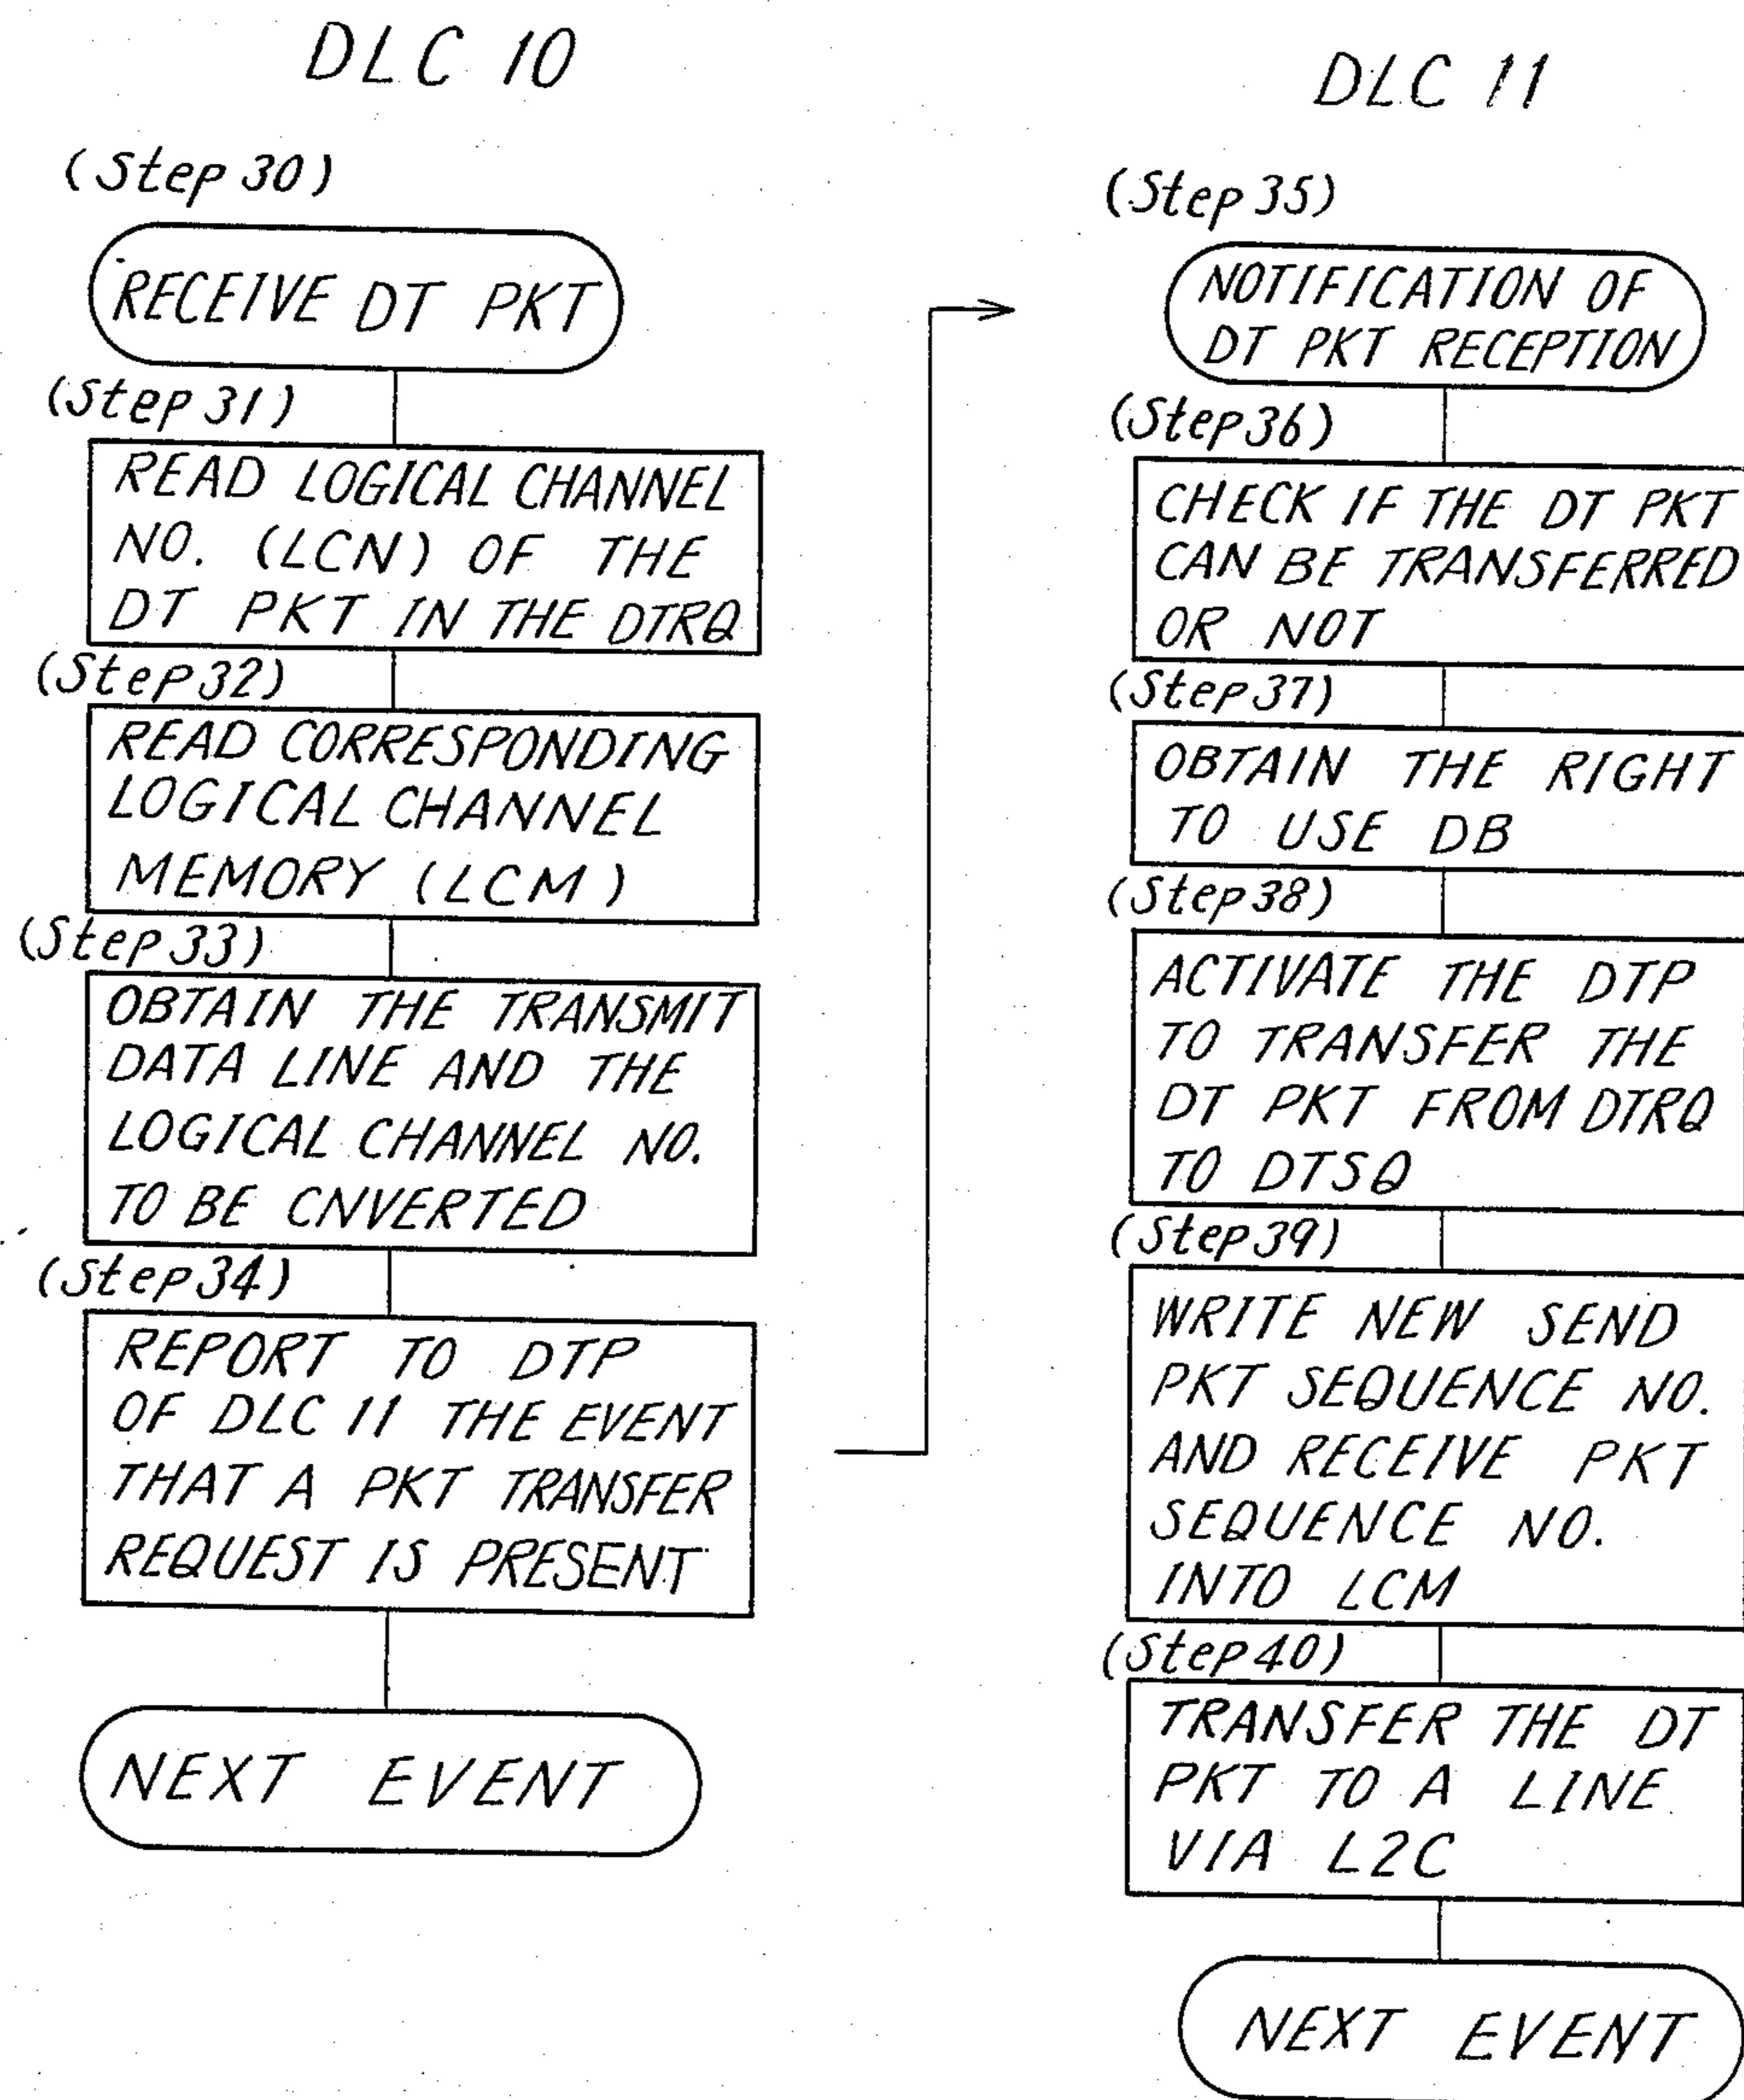 DLC 10
(Step 30)
RECEIVE DT PKT
(Step 31)
READ LOGICAL CHANNEL
NO. (LCN) OF THE
DT PKT IN THE DTRQ
(Step 32)
READ CORRESPONDING
LOGICAL CHANNEL
MEMORY (LCM)
(Step 33)
OBTAIN THE TRANSMIT
DATA LINE AND THE
LOGICAL CHANNEL NO.
TO BE CNVERTED
(Step 34)
REPORT TO DTP
OF DLC 11 THE EVENT
THAT A PKT TRANSFER
REQUEST IS PRESENT
NEXT EVENT
DLC 11
(Step 35)
NOTIFICATION OF
DT PKT RECEPTION
(Step 36)
CHECK IF THE DT PKT
CAN BE TRANSFERRED
OR NOT
(Step 37)
OBTAIN THE RIGHT
TO USE DB
(Step 38)
ACTIVATE THE DTP
TO TRANSFER THE
DT PKT FROM DTRQ
TO DTSQ
(Step 39)
WRITE NEW SEND
PKT SEQUENCE NO.
AND RECEIVE PKT
SEQUENCE NO.
INTO LCM
(Step 40)
TRANSFER THE DT
PKT TO A LINE
VIA L2C
NEXT EVENT